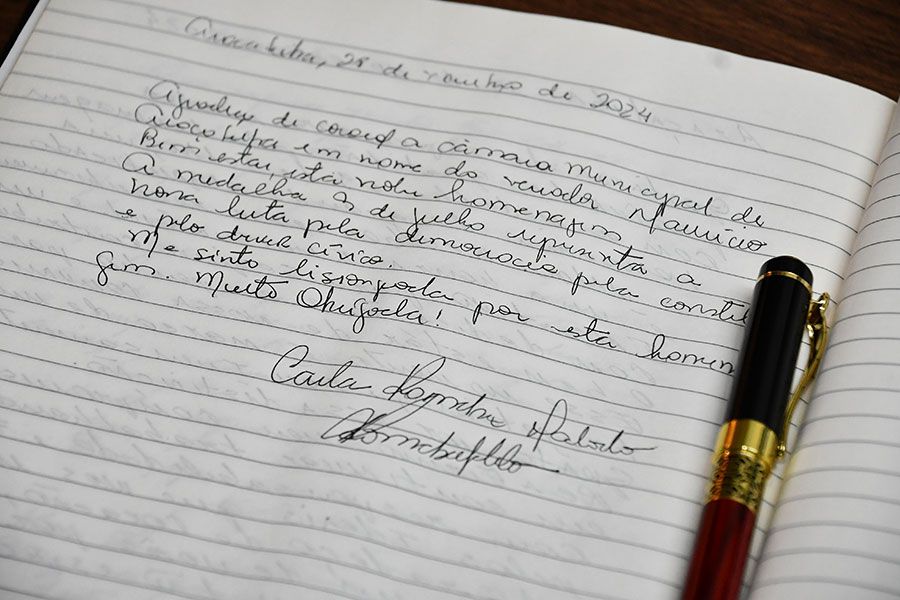 Araçatuba, 28 de de 2024
Agradeço de coração a câmara municipal de
Araçatuba em nome do vereador Maurício
Bem estar, esta nobre homenagem
A medalha 9 de julho representa a
nossa luta pela democracia pela
e pelo dever cívico.
Me sinto lisonjeada por esta homen
gem. Muito Obrigada!
Carla